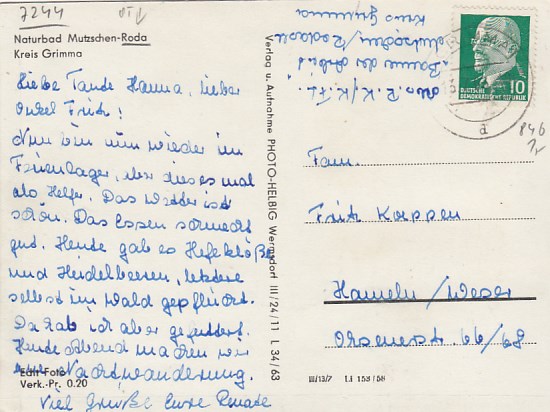 7244
Naturbad Mutzschen-Roda
Kreis Grimma
Liebe Tante Hanna, lieber
Onkel Fritz!
Nun bin nun wieder im
Ferienlager, aber dieses mal
als Helfer. Das Wetter ist
schön. Das Essen schmeckt
gut. Heute gab es Hefeklöße
und Heidelbeeren, letztere
selbst im Wald gepflückt.
Da hab ich aber gefuttert.
Heute Abend machen wir
eine Nachtwanderung.
Edit-Foto
Verk.-Pr. 0.20
Viel Grüße Eure Renate
Verlag u. Aufnahme PHOTO-HELBIG Wermsdorf III/24/11 L 34/63
Abs. R. K.
"Bauma der Arbeit"
Mutzschen/Roda
Kreis Grimma
10
DEUTSCHE
DEMOKRATISCHE REPUBLIK
a
846
Fam.
Fritz Koeppen
Hameln/Weser
66/68
III/13/7